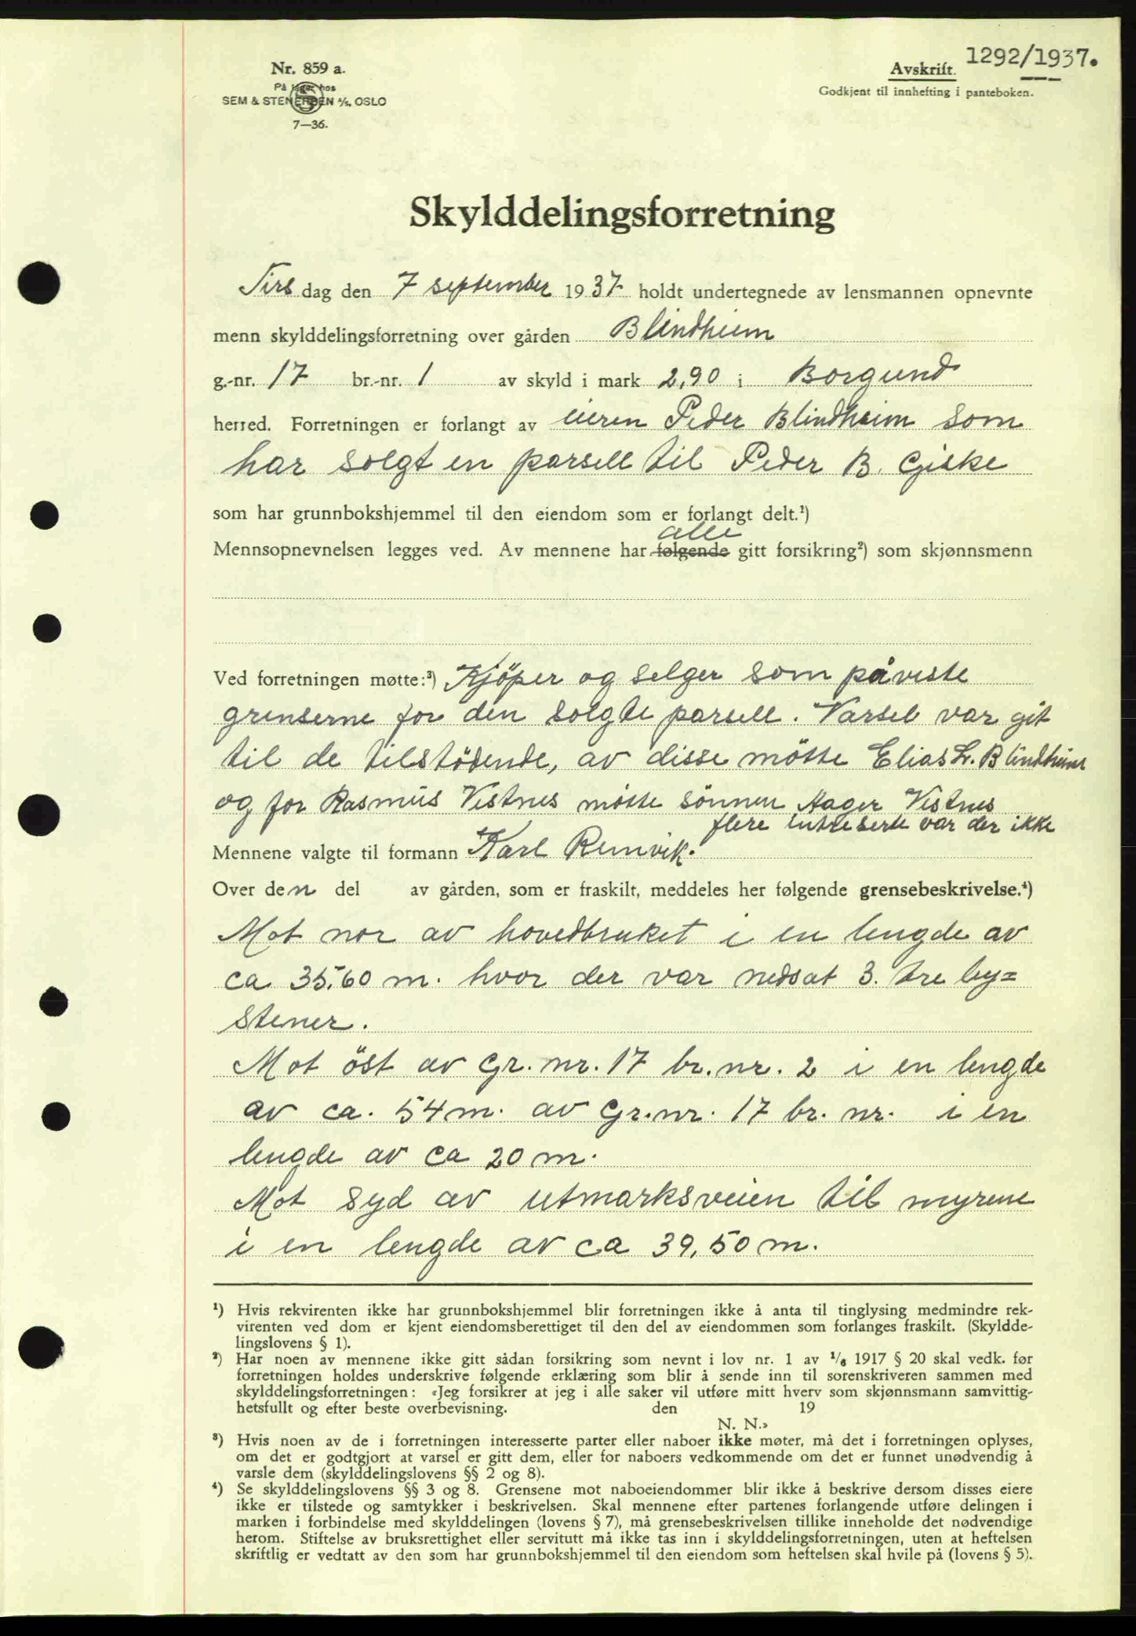 1292/1937.
Nr. 859 a.
På lager hos
SEM & STENERSEN A/S, OSLO
7—36.
Avskrift.
Godkjent til innhefting i panteboken.
Skylddelingsforretning
Tirsdag den 7 september 1937 holdt undertegnede av lensmannen opnevnte
menn skylddelingsforretning over gården Blindheim
g.-nr. 17 br.-nr. 1 av skyld i mark 2,90 i Borgund
herred. Forretningen er forlangt av eieren Peder Blindheim som
har solgt en parsell til Peder B. Giske
som har grunnbokshjemmel til den eiendom som er forlangt delt.¹)
alle
Mennsopnevnelsen legges ved. Av mennene har følgende gitt forsikring²) som skjønnsmenn
Ved forretningen møtte:³) Kjöper og selger som påviste
grenserne for den solgte parsell. Varsel var git
til de tilstödende, av disse mötte Elias L. Blindheim
og for Rasmus Vistnes mötte sönnen Aager Vistnes
flere intreserte var der ikke
Mennene valgte til formann Karl Remvik.
Over den del av gården, som er fraskilt, meddeles her følgende grensebeskrivelse.⁴)
Mot nor av hovedbruket i en lengde av
ca 35,60 m. hvor der var nedsat 3. tre by=
stener.
Mot öst av Gr. nr. 17 br. nr. 2 i en lengde
av ca. 54 m. av Gr. nr. 17 br. nr. i en
lengde av ca 20 m.
Mot syd av utmarksveien til myrene
i en lengde av ca 39,50 m.
¹) Hvis rekvirenten ikke har grunnbokshjemmel blir forretningen ikke å anta til tinglysing medmindre rek-
virenten ved dom er kjent eiendomsberettiget til den del av eiendommen som forlanges fraskilt. (Skyldde-
lingslovens § 1).
²) Har noen av mennene ikke gitt sådan forsikring som nevnt i lov nr. 1 av ¹/₆ 1917 § 20 skal vedk. før
forretningen holdes underskrive følgende erklæring som blir å sende inn til sorenskriveren sammen med
skylddelingsforretningen: «Jeg forsikrer at jeg i alle saker vil utføre mitt hverv som skjønnsmann samvittig-
hetsfullt og efter beste overbevisning. den 19
N. N.»
³) Hvis noen av de i forretningen interesserte parter eller naboer ikke møter, må det i forretningen oplyses,
om det er godtgjort at varsel er gitt dem, eller for naboers vedkommende om det er funnet unødvendig å
varsle dem (skylddelingslovens §§ 2 og 8).
⁴) Se skylddelingslovens §§ 3 og 8. Grensene mot naboeiendommer blir ikke å beskrive dersom disses eiere
ikke er tilstede og samtykker i beskrivelsen. Skal mennene efter partenes forlangende utføre delingen i
marken i forbindelse med skylddelingen (lovens § 7), må grensebeskrivelsen tillike inneholde det nødvendige
herom. Stiftelse av bruksrettighet eller servitutt må ikke tas inn i skylddelingsforretningen, uten at heftelsen
skriftlig er vedtatt av den som har grunnbokshjemmel til den eiendom som heftelsen skal hvile på (lovens § 5).